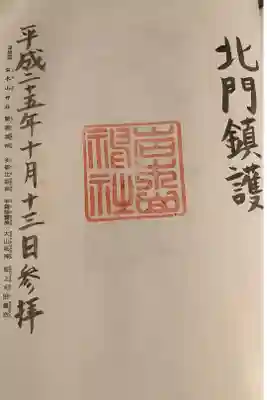 北門鎮護
岩木山
神社
平成二十五年十月十三日参拝